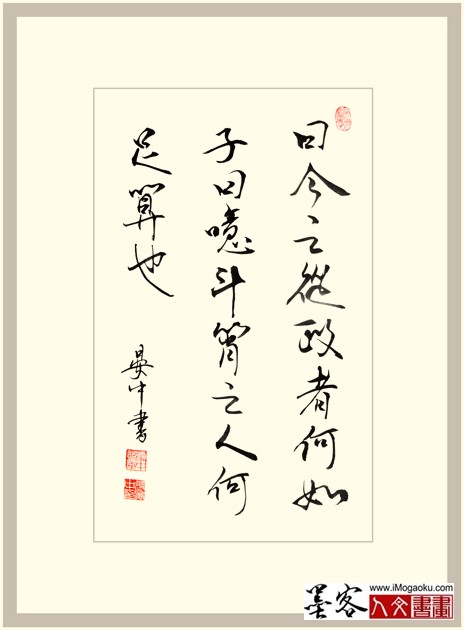 曰今之從政者何如
子曰噫斗筲之人何
足算也
晏中書
墨客
www.iMogaoku.com
人文書畫